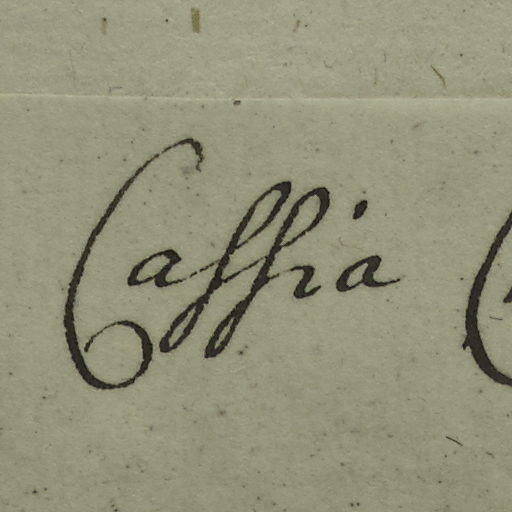 Caſſia